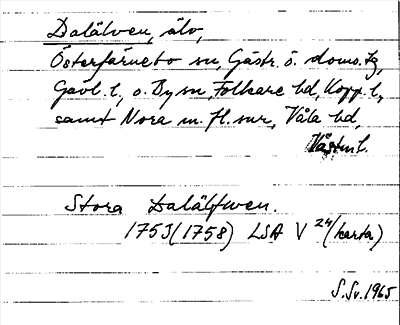 Dalälven, älv,
Österfärnebo sn, Gästr. ö. doms. tg,
Gävl. l., o. By sn, Folkare hd, Kopp. l.,
samt Nora m. fl. snr, Våla hd,
Västm l.
Stora Dalälfwen.
1753 (1758) LSA V 24 (karta)
S. Sv. 1965